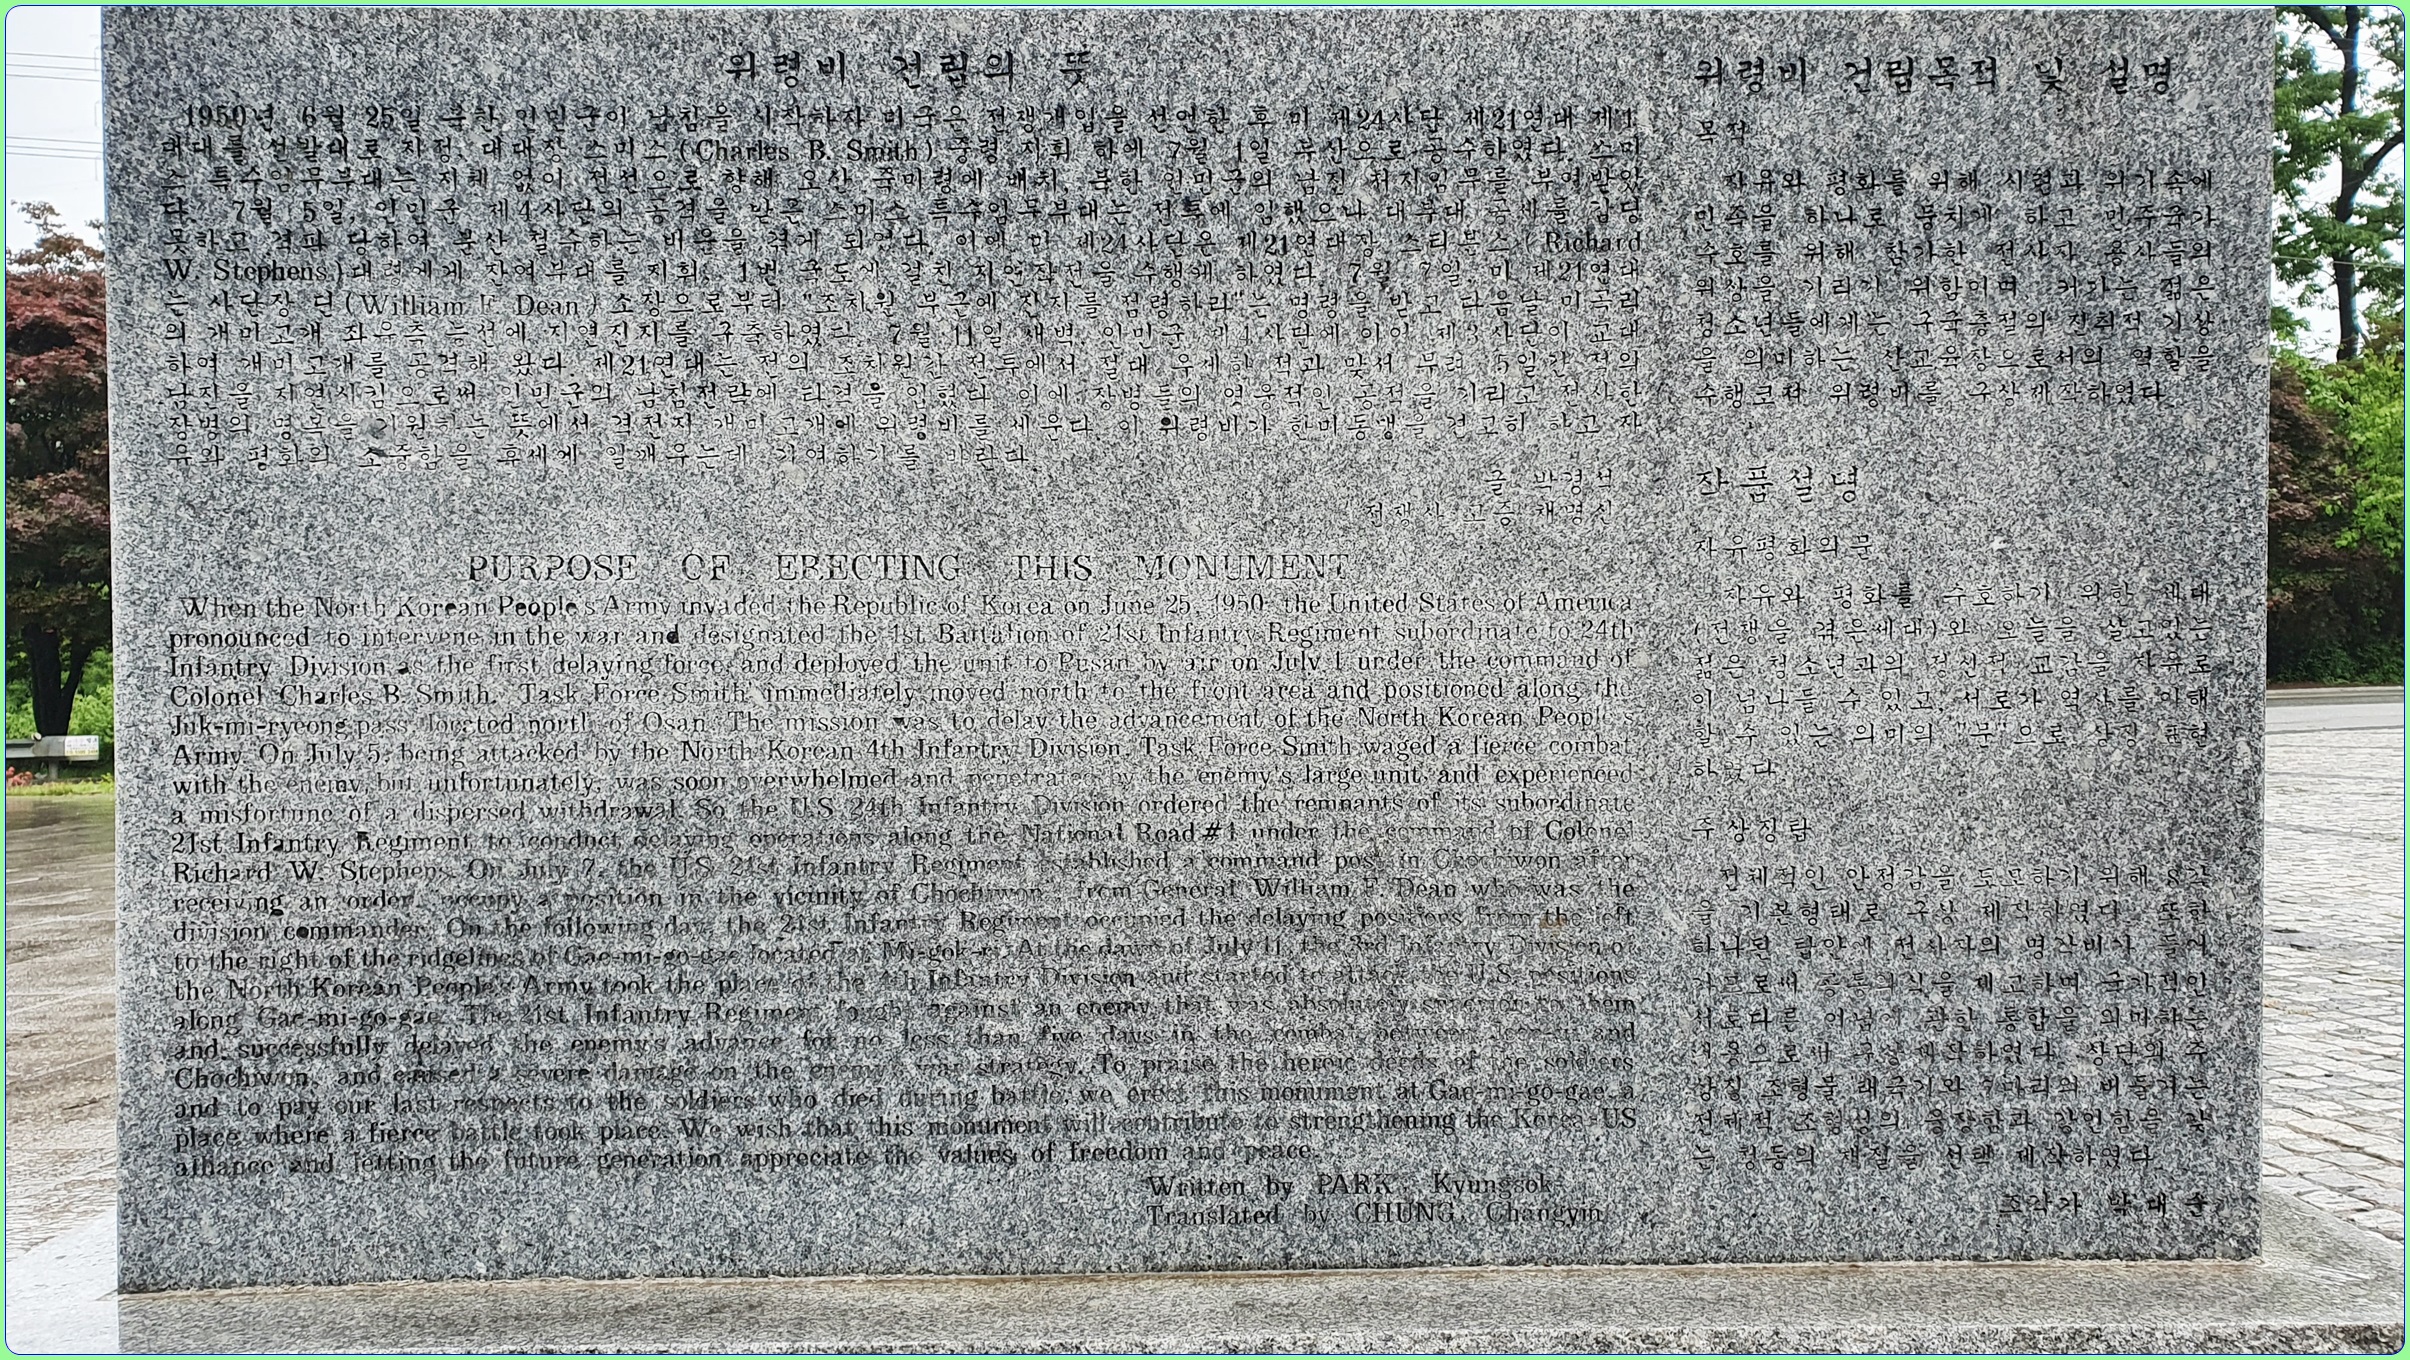 위령비 건립의 뜻
1950년 6월 25일 북한 인민군이 남침을 시작하자 미국은 전쟁개입을 선언한 후 미 제24사단 제21연대 제1
대대를 선발대로 지정, 대대장 스미스(Charles B. Smith) 중령 지휘 하에 7월 1일 부산으로 공수하였다. 스미
스 특수임무부대는 지체 없이 전선으로 향해 오산 죽미령에 배치, 북한 인민군의 남진 저지임무를 부여받았
다. 7월 5일, 인민군 제4사단의 공격을 받은 스미스 특수임무부대는 전투에 임했으나 대부대 공세를 감당
못하고 격파 당하여 분산 철수하는 비운을 겪게 되었다. 이에 미 제24사단은 제21연대장 스티븐스(Richard
W. Stephens)대령에게 잔여부대를 지휘, 1번 국도에 걸친 지연작전을 수행케 하였다. 7월 7일, 미 제21연대
는 사단장 딘(William F. Dean) 소장으로부터 "조치원 부근에 진지를 점령하라"는 명령을 받고 다음날 미곡리
의 개미고개 좌우측 능선에 지연진지를 구축하였다. 7월 11일 새벽, 인민군 제4사단에 이어 제3사단이 교대
하여 개미고개를 공격해 왔다. 제21연대는 전의 조치원간 전투에서 절대 우세한 적과 맞서 무려 5일간 적의
남진을 지연시킴으로써 인민군의 남침전략에 타격을 입혔다. 이에 장병들의 영웅적인 공적을 기리고 전사한
장병의 명복을 기원하는 뜻에서 격전지 개미고개에 위령비를 세운다. 이 위령비가 한미동맹을 견고히 하고 자
유와 평화의 소중함을 후세에 일깨우는데 기여하기를 바란다.
글 박경석
전쟁사 고증 채명신
PURPOSE OF ERECTING THIS MONUMENT
When the North Korean People's Army invaded the Republic of Korea on June 25, 1950, the United States of America
pronounced to intervene in the war and designated the 1st Battalion of 21st Infantry Regiment subordinate to 24th
Infantry Division as the first delaying force, and deployed the unit to Pusan by air on July 1 under the command of
Colonel Charles B. Smith. Task Force Smith immediately moved north to the front area and positioned along the
Juk-mi-ryeong pass located north of Osan. The mission was to delay the advancement of the North Korean People's
Army. On July 5, being attacked by the North Korean 4th Infantry Division, Task Force Smith waged a fierce combat
with the enemy, but unfortunately, was soon overwhelmed and penetrated by the enemy's large unit and experienced
a misfortune of a dispersed withdrawal. So the U.S 24th Infantry Division ordered the remnants of its subordinate
21st Infantry Regiment to conduct delaying operations along the National Road #1 under the command of Colonel
Richard W. Stephens. On July 7, the U.S 21st Infantry Regiment established a command post in Chochiwon after
receiving an order, occupy a position in the vicinity of Chochiwon, from General William F. Dean who was the
division commander. On the following day, the 21st Infantry Regiment occupied the delaying positions from the left
to the right of the ridgelines of Gae-mi-go-gae located at Mi-gok-ri. At the dawn of July 11, the 3rd Infantry Division of
the North Korean People's Army took the place of the 4th Infantry Division and started to attack the U.S. positions
along Gae-mi-go-gae. The 21st Infantry Regiment fought against an enemy that was absolutely superior to them
and successfully delayed the enemy's advance for no less than five days in the combat between Jeon-ui and
Chochiwon, and caused a severe damage on the enemy's war strategy. To praise the heroic deeds of the soldiers
and to pay our last respects to the soldiers who died during battle, we erect this monument at Gae-mi-go-gae, a
place where a fierce battle took place. We wish that this monument will contribute to strengthening the Korea-US
alliance and letting the future generation appreciate the values of freedom and peace.
Written by PARK, Kyungsok
Translated by CHUNG, Changyin
위령비 건립목적 및 설명
목적
자유와 평화를 위해 시련과 위기속에
민족을 하나로 뭉치게 하고 민주국가
수호를 위해 참가한 전사자 용사들의
위상을 기리기 위함이며, 커가는 젊은
청소년들에게는 구국충절의 진취적 기상
을 의미하는 산교육장으로서의 역할을
수행코자 위령비를 구상제작하였다.
작품설명
자유평화의문
자유와 평화를 수호하기 위한 세대
(전쟁을 겪은세대)와 오늘을 살고있는
젊은 청소년과의 정신적 교감을 자유로
이 넘나들 수 있고, 서로가 역사를 이해
할 수 있는 의미의 "문"으로 상징 표현
하였다.
주상징탑
전체적인 안정감을 도모하기 위해 8각
을 기본형태로 구상 제작하였다. 또한
하나된 탑안에 전사자의 명각비가 들어
가므로써 공동의식을 제고하며 국가적인
서로다른 이념에 관한 통합을 의미하는
내용으로써 구상제작하였다. 상단의 주
상징 조형물 태극기와 7마리의 비둘기는
전체적 조형성의 웅장함과 강인함을 갖
는 청동의 재질을 선택 제작하였다.
조각가 박대순